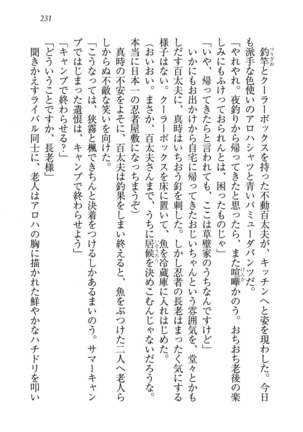 231
釣竿とクーラーボックスを持った不動百太夫が、キッチンへと姿を現わした。今日
も派手な色使いのアロハシャツと青いバミューダパンツだ。
「やれやれ。夜釣りから帰ってきたと思ったら、また喧嘩かのう。おちおち老後の楽
しみにもふけっておられんとは、困ったものじゃ」
「いや、帰ってきたらと言われても、ここは草壁家のうちなんですけど」
いかにもお出かけから自宅に帰ってきたおじいちゃんという雰囲気を、堂々とかも
しだす百太夫に、真時はいちおう釘を刺した。しかし忍者の長老はまったく気にする
様子はない。クーラーボックスを床に置いて、魚を冷蔵庫に入れはじめた。
(おいおい。まさか、百太夫さんまで、うちに居候を決めこむんじゃないだろうな。
本当に日本一の忍者屋敷になっちまうぞ)
真時の不安をよそに、百太夫は釣果をしまい終えると、魚をぶつけた二人へ老人ら
しからぬ不敵な笑いを向けた。
「こうなっては、狭霧と楓できちんと決着をつけるしかあるまいのう。サマーキャン
プではじまった遺恨は、キャンプで終わらせよう」
「キャンプで終わらせる?」
「どういうことですか、長老様」
聞きかえすライバル同士に、老人はアロハの胸に描かれた鮮やかなハチドリを叩い